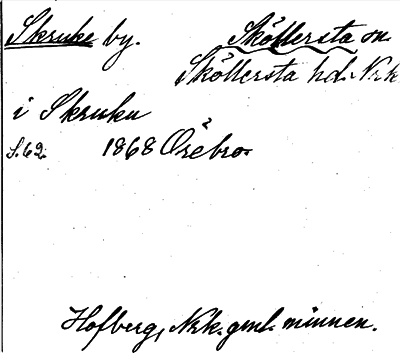 Skruke by. Sköllersta sn.
Sköllersta hd. Nrk
i Skruku
S. 62. 1868 Örebro
Hofberg, Nrk. gml. minnen.